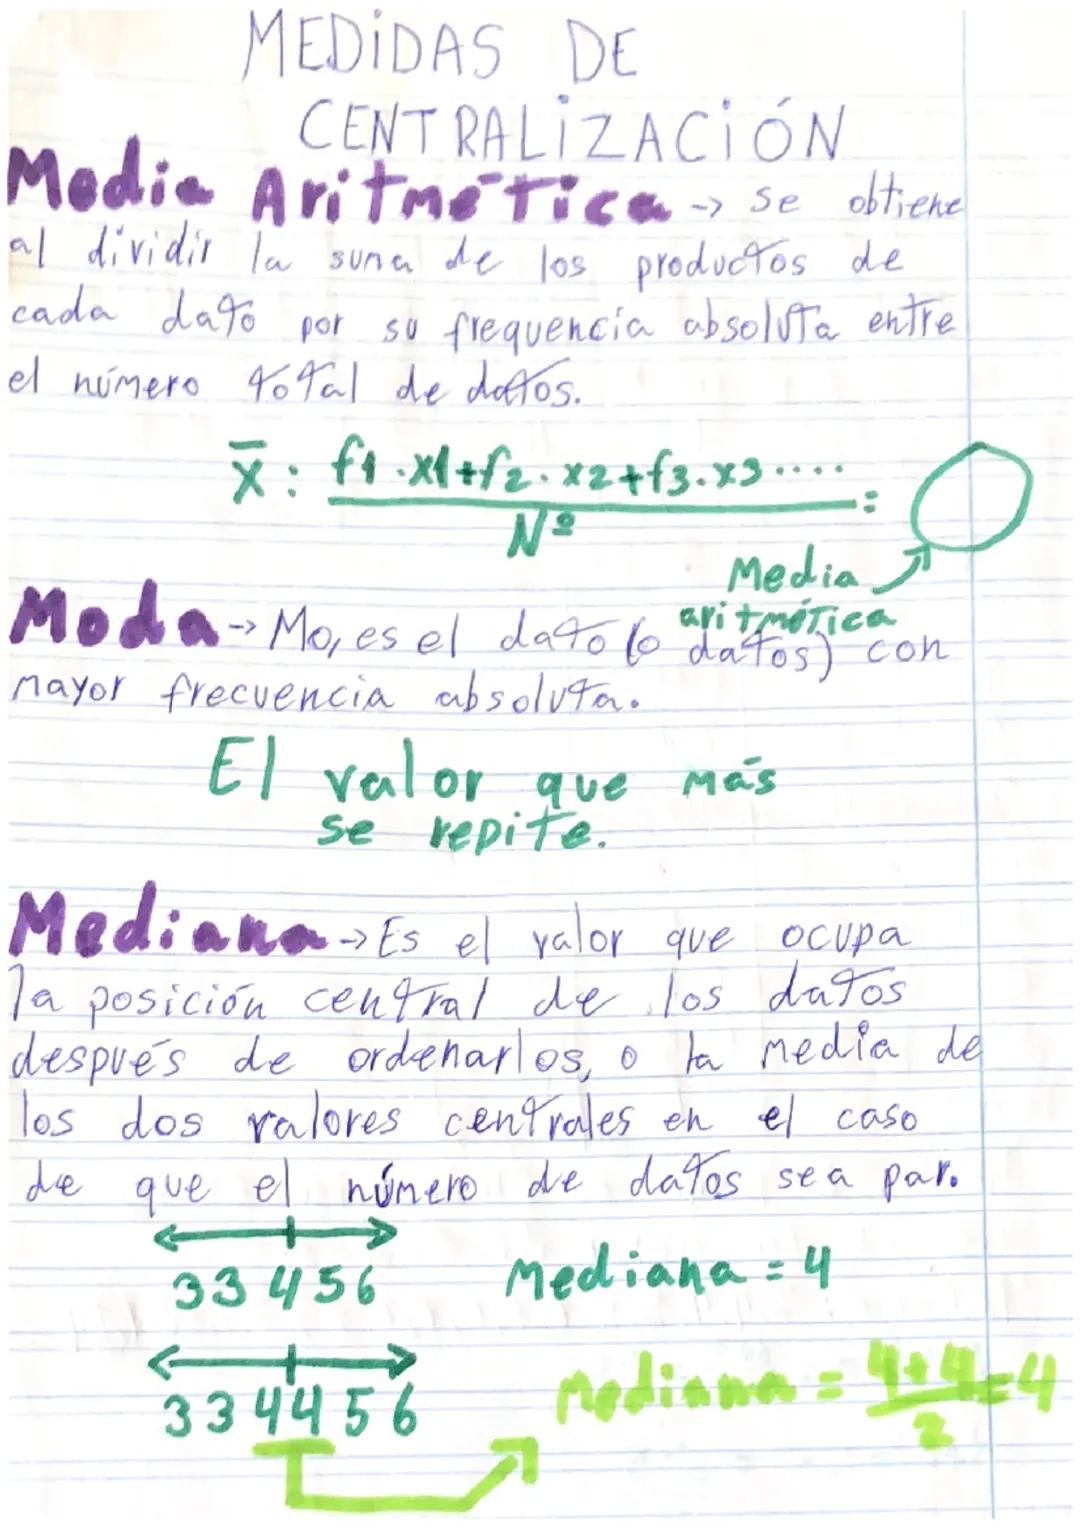 MEDIDAS DE
CENTRALIZACIÓN
Media Aritmética → se obtiene
al dividir la suma de los productos de
cada dato por su frequencia absoluta entre
el número total de datos.
x̄ : f1 · x1 + f2 · x2 + f3 · x3 ···· =
Nº
Media
aritmética
Moda → Mo, es el dato (o datos) con
mayor frecuencia absoluta.
El valor que más
se repite.
Mediana → Es el valor que ocupa
la posición central de los datos
después de ordenarlos, o la media de
los dos valores centrales en el caso
de que el número de datos sea par.
3 3 4 5 6 Mediana = 4
3 3 4 4 5 6 Mediana = 4+4/2 = 4